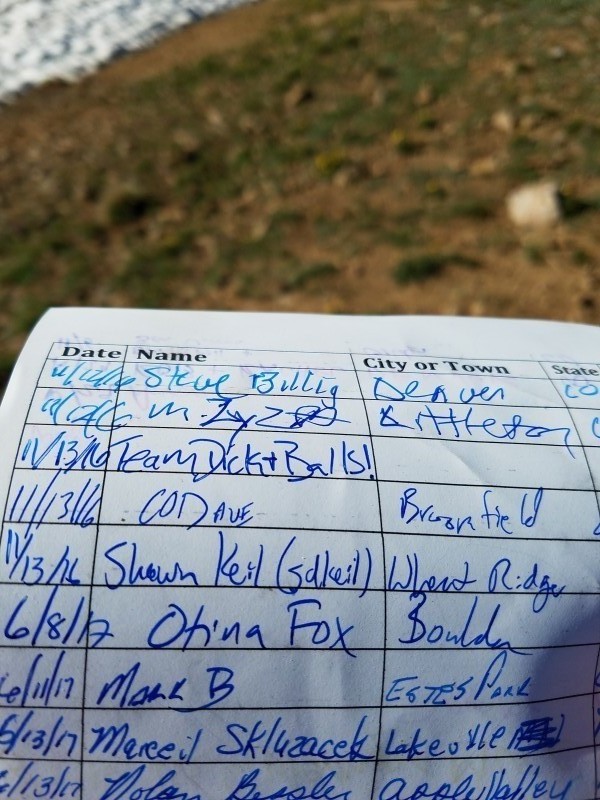 Date Name City or Town State
Steve Billig Denver CO
M. Littleton
11/13/16 Team Dick+Balls!
11/13/16 CODAVE Broomfield
11/13/16 Shawn Keil (sdkeil) Wheat Ridge
6/8/17 Otina Fox Boulder
6/11/17 Mark B Estes Park
6/13/17 Marceil Skluzacek Lakeville
6/13/17 Nolan Apple Valley